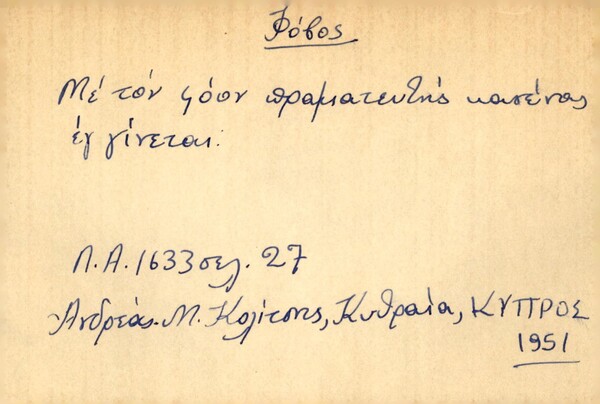 Φόβος
Μέ τόν φόον πραματευτής κανένας
έγ γίνεται.
Λ.Α. 1633 σελ. 27
Ανδρέας Μ. Κολίτσης, Κυθραία, ΚΥΠΡΟΣ
1951